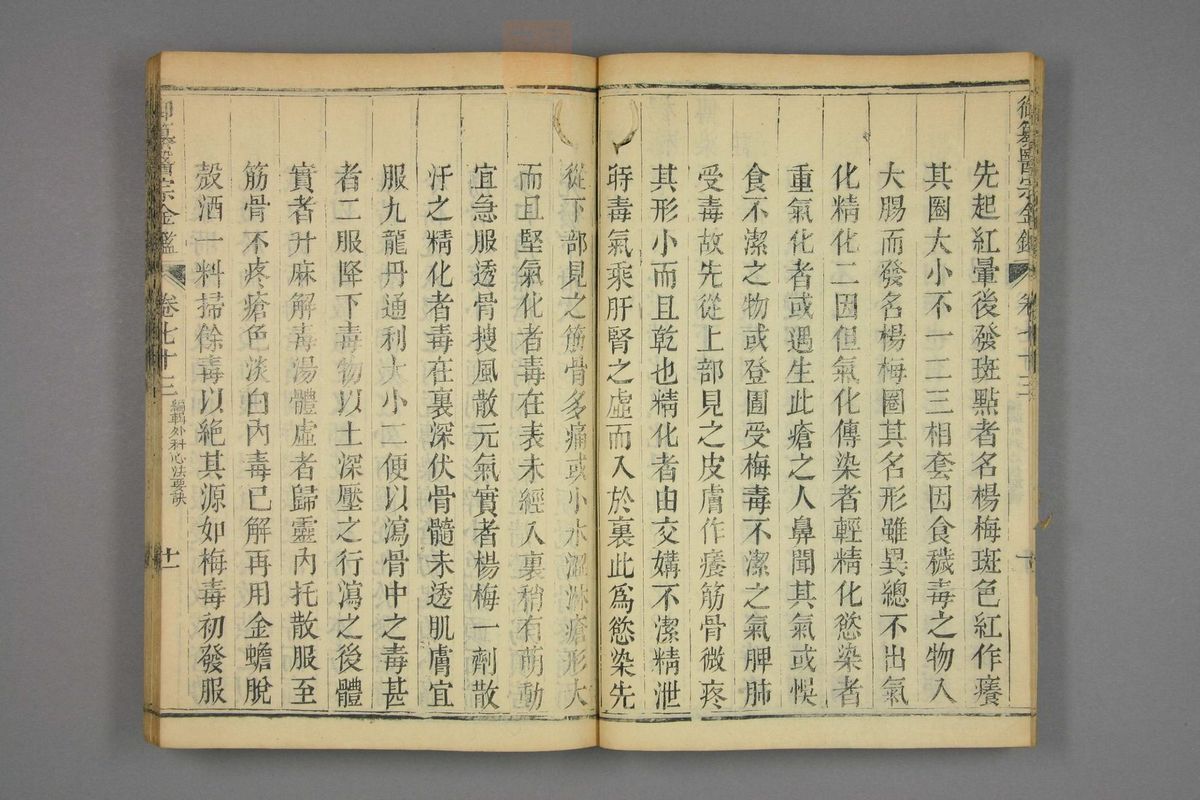 御纂醫宗金鑑
卷七十三
先起紅暈後發斑點者名楊梅斑色紅作癢
其圈大小不一二三相套因食穢毒之物入
大腸而發名楊梅圈其名形雖異總不出氣
化精化二因但氣化傳染者輕精化慾染者
重氣化者或遇生此瘡之人鼻聞其氣或悞
食不潔之物或登圊受梅毒不潔之氣脾肺
受毒故先從上部見之皮膚作癢筋骨微疼
其形小而且乾也精化者由交媾不潔精泄
時毒氣乘肝腎之虛而入於裏此爲慾染先
從下部見之筋骨多痛或小水澀淋瘡形大
而且堅氣化者毒在表未經入裏稍有萌動
宜急服透骨搜風散元氣實者楊梅一劑散
汗之精化者毒在裏深伏骨髓未透肌膚宜
服九龍丹通利大小二便以瀉骨中之毒甚
者二服降下毒物以土深壓之行瀉之後體
實者升麻解毒湯體虛者歸靈內托散服至
筋骨不疼瘡色淡白內毒已解再用金蟾脫
殼酒一料掃餘毒以絶其源如梅毒初發服
御纂醫宗金鑑
卷七十三
編輯外科心法要訣
十一